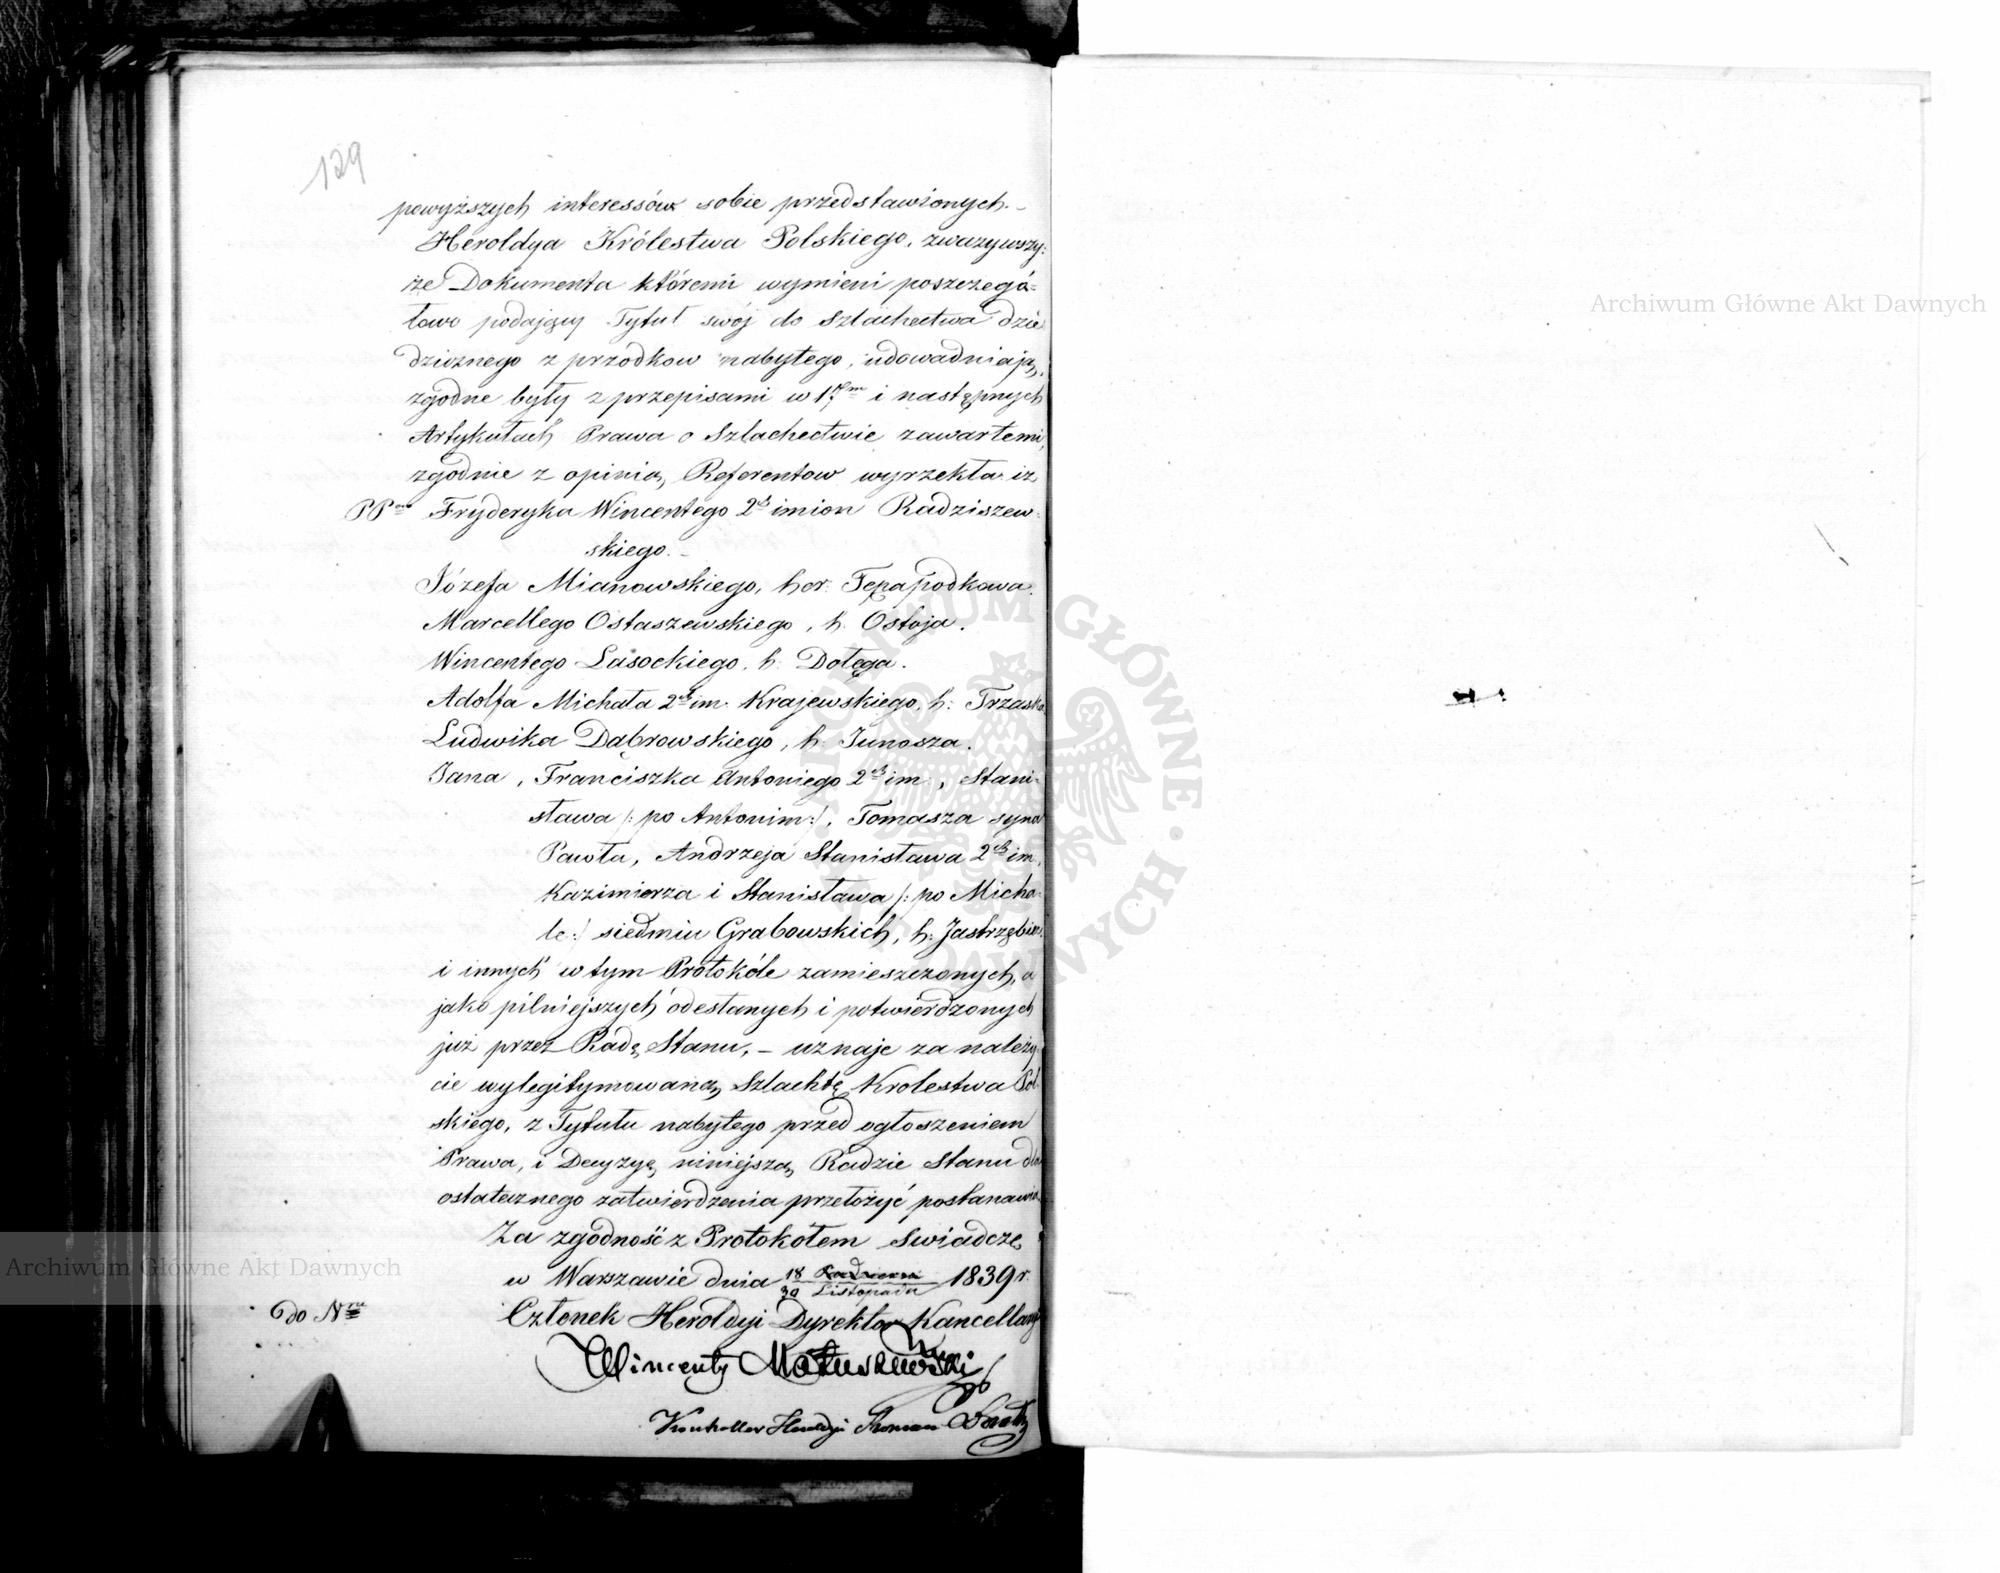 129
powyższych interessów sobie przedstawionych. –
Heroldya Królestwa Polskiego, zwazywszy:
że Dokumenta któremi wymieni poszczegó=
łowo podający Tytuł swój do Szlachectwa dzie
dzicznego z przodkow nabytego, udowadniają,
zgodne były z przepisami w 17m i następnych
Artykułach Prawa o Szlachectwie zawartemi,
zgodnie z opinią Referentow wyrzekła iż
PPow Fryderyka Wincentego 2ch imion Radziszew-
skiego. –
Józefa Mianowskiego, her: Tępapodkowa.
Marcellego Ostaszewskiego, h. Ostoja.
Wincentego Lasockiego, h: Dołęga.
Adolfa Michała 2ch im. Krajewskiego, h: Trzaska
Ludwika Dąbrowskiego, h. Junosza.
Jana, Franciszka Antoniego 2ch im:, Stani-
sława /: po Antonim:/, Tomasza syna
Pawła, Andrzeja Stanisława 2ch im,
Kazimierza i Stanisława /: po Micha-
le:/ siedmiu Grabowskich, h: Jastrzębiec
i innych w tym Protokóle zamieszczonych, a
jako pilniejszych odesłanych i potwierdzonych
już przez Radę Stanu, – uznaje za należy
cie wylegitymowaną Szlachtę Krolestwa Pol-
skiego, z Tytułu nabytego przed ogłoszeniem
Prawa, i Decyzyę niniejszą Radzie Stanu dla
ostatecznego zatwierdzenia przełożyć postanawia.
Za zgodność z Protokołem Swiadczę
w Warszawie dnia 18/30 Listopada 1839 r.
do Nru Członek Heroldyi Dyrektor Kancellaryi
Wincenty Matuszewski
Kontroller Heroldyi Roman
Archiwum Główne Akt Dawnych
Archiwum Główne Akt Dawnych
ARCHIWUM GŁÓWNE AKT DAWNYCH